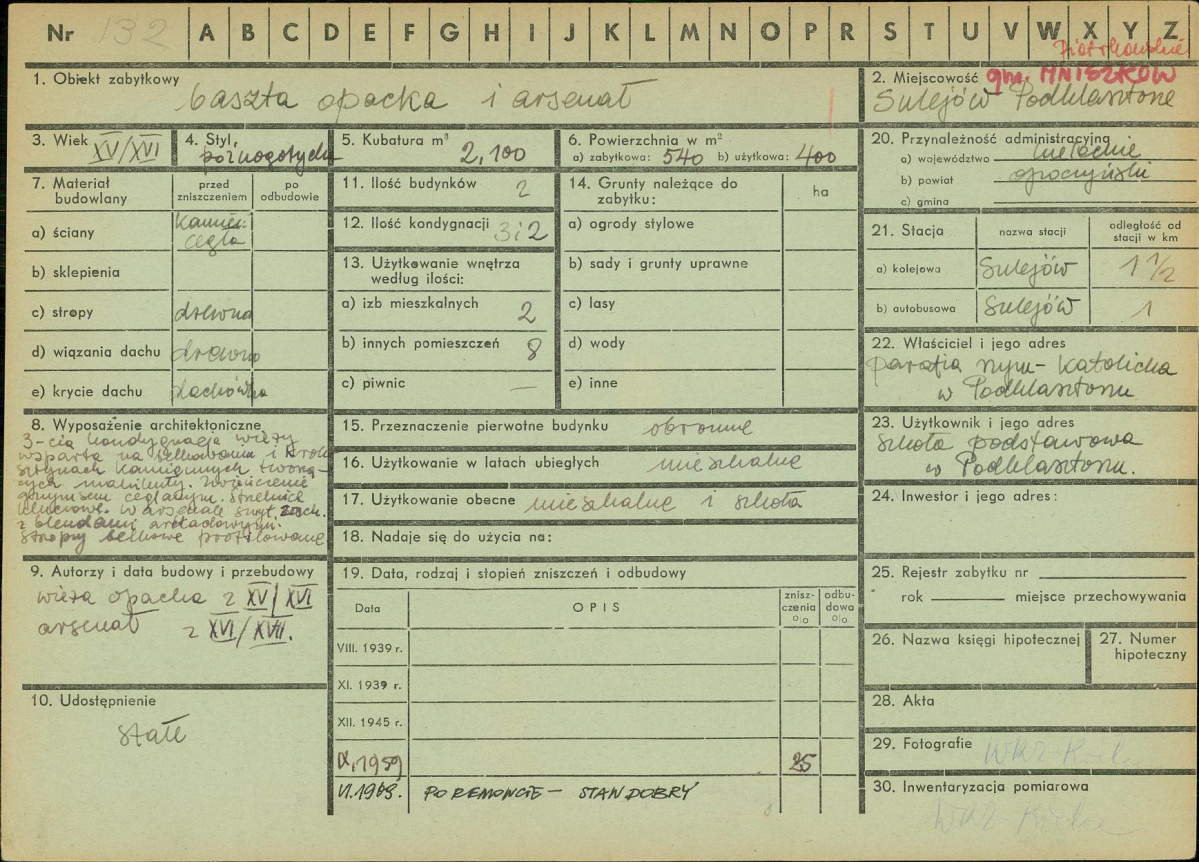 Nr 132 A B C D E F G H I J K L M N O P R S T U V W X Y Z
Piotrkowskie
1. Obiekt zabytkowy
baszta opacka i arsenał
2. Miejscowość gm. MNISZKÓW
Sulejów Podklasztorze
3. Wiek XV/XVI
4. Styl,
późnogotycki
5. Kubatura m³
2,100
6. Powierzchnia w m²
a) zabytkowa: 540 b) użytkowa: 400
20. Przynależność administracyjna
a) województwo kieleckie
b) powiat opoczyński
c) gmina
7. Materiał budowlany
przed zniszczeniem
po odbudowie
a) ściany kamień cegła
b) sklepienia
c) stropy drewno
d) wiązania dachu drewno
e) krycie dachu dachówka
11. Ilość budynków 2
12. Ilość kondygnacji 3 i 2
13. Użytkowanie wnętrza
według ilości:
a) izb mieszkalnych 2
b) innych pomieszczeń 8
c) piwnic —
14. Grunty należące do
zabytku:
ha
a) ogrody stylowe
b) sady i grunty uprawne
c) lasy
d) wody
e) inne
21. Stacja
nazwa stacji
odległość od
stacji w km
a) kolejowa Sulejów 1 1/2
b) autobusowa Sulejów 1
22. Właściciel i jego adres
parafia rzym-katolicka
w Podklasztorzu
8. Wyposażenie architektoniczne
3-cia kondygnacja wieży
wsparta na
kamiennych
gzymsem ceglanym. Strzelnice
kluczowe. W arsenale szczyt zach.
z blendami arkadowymi.
Stropy belkowe profilowane
15. Przeznaczenie pierwotne budynku obronne
16. Użytkowanie w latach ubiegłych mieszkalne
17. Użytkowanie obecne mieszkalne i szkoła
18. Nadaje się do użycia na:
23. Użytkownik i jego adres
Szkoła podstawowa
w Podklasztorzu.
24. Inwestor i jego adres:
9. Autorzy i data budowy i przebudowy
wieża opacka z XV/XVI
arsenał z XVI/XVII.
10. Udostępnienie
stałe
19. Data, rodzaj i stopień zniszczeń i odbudowy
Data
OPIS
znisz-
czenia
%
odbu-
dowa
%
VIII. 1939 r.
XI. 1939 r.
XII. 1945 r.
IX.1959 25
VI.1969. PO REMONCIE — STAN DOBRY
25. Rejestr zabytku nr
rok miejsce przechowywania
26. Nazwa księgi hipotecznej
27. Numer
hipoteczny
28. Akta
29. Fotografie WKZ-Kielce
30. Inwentaryzacja pomiarowa
WKZ-Kielce